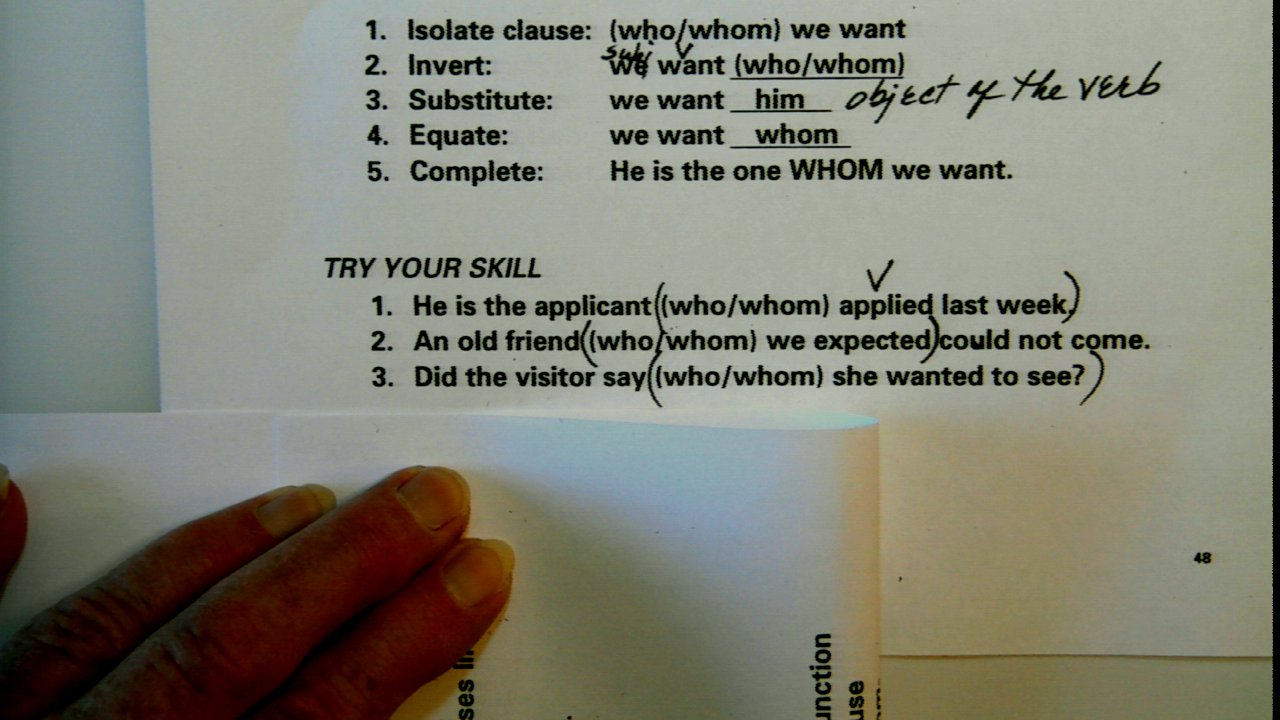 1. Isolate clause: (who/whom) we want
subj
2. Invert: we want (who/whom)
3. Substitute: we want him object of the verb
4. Equate: we want whom
5. Complete: He is the one WHOM we want.
TRY YOUR SKILL
1. He is the applicant ((who/whom) applied last week.)
2. An old friend ((who/whom) we expected) could not come.
3. Did the visitor say ((who/whom) she wanted to see?)
48